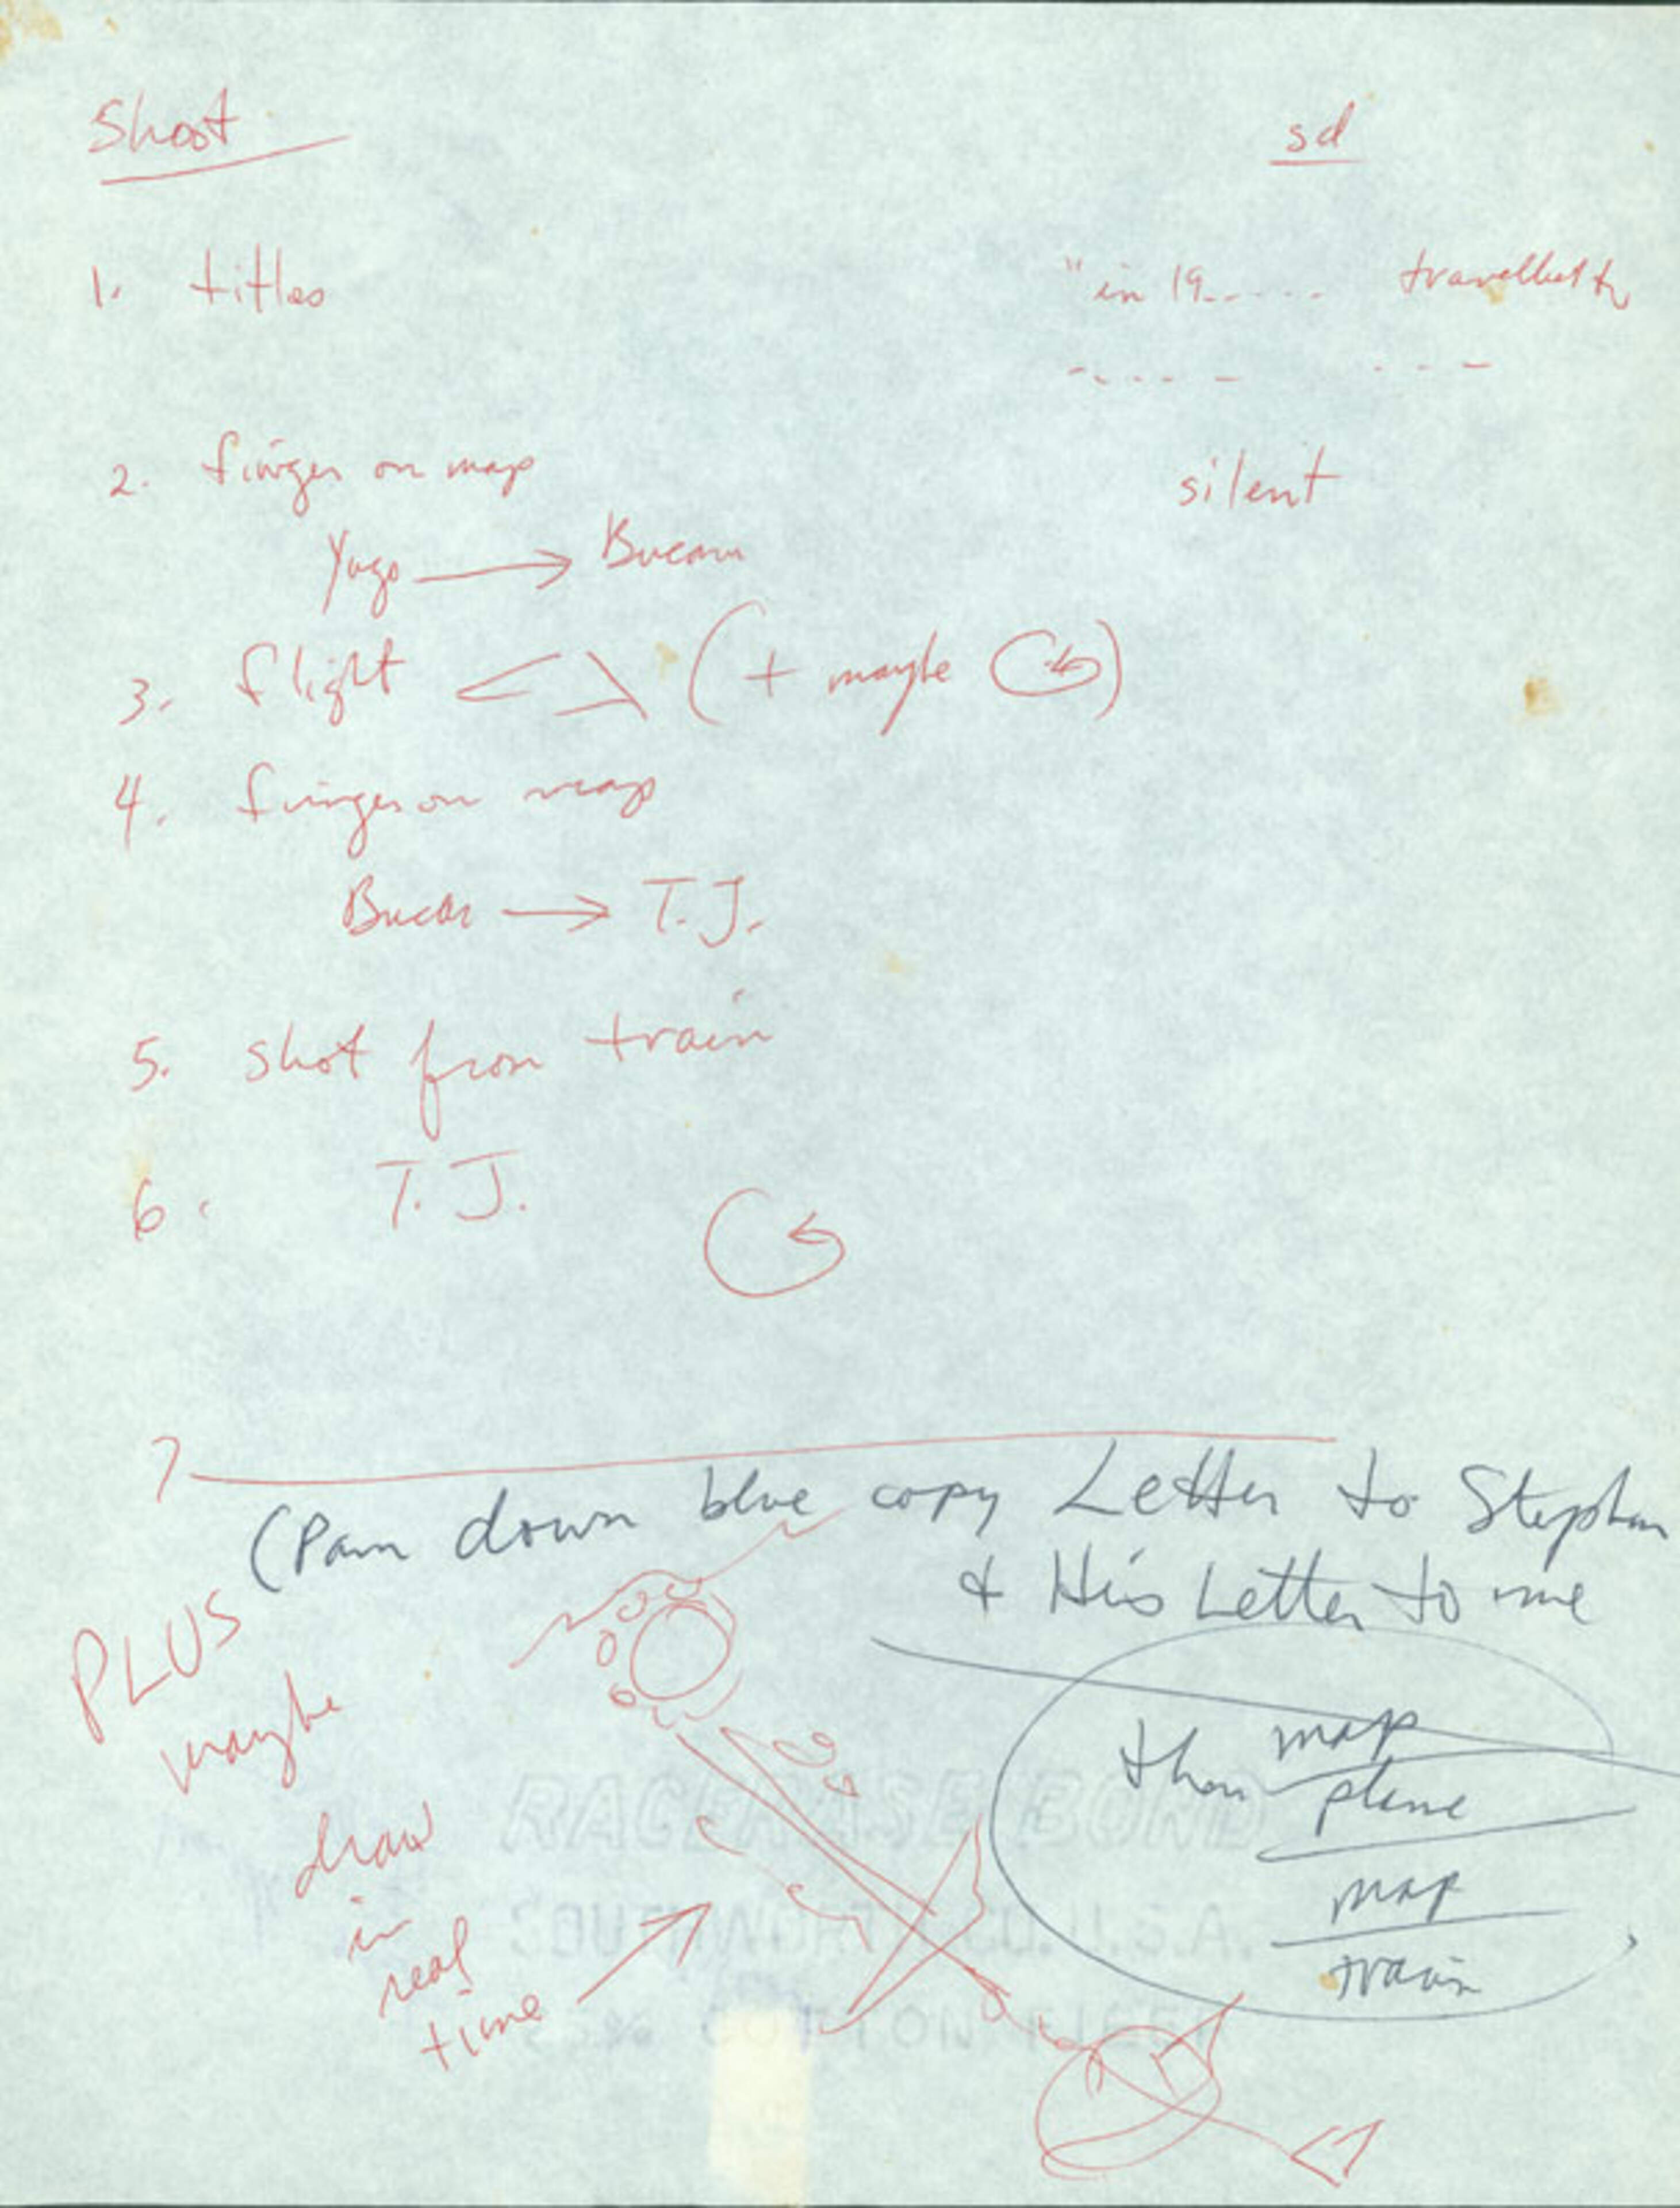 Shoot
sd
1. titles
"in 19...... travelled to
2. finger on map
silent
Yugo → Bucam
3. flight (+ maybe )
4. finger on map
Bucar → T.J.
5. shot from train
6. T.J.
7
(Pan down blue copy Letter to Stephan
& His Letter to me
PLUS
maybe
draw
in
real
time
then map
plane
map
train
RACERASE BOND
SOUTHWORTH CO. U.S.A.
25% COTTON FIBER